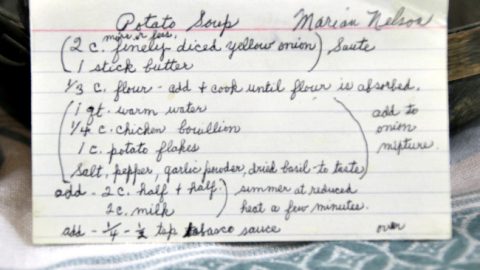 Potato Soup Marian Nelson
more or less,
(2 c. finely diced yellow onion), Saute
1 stick butter
1/3 c. flour - add + cook until flour is absorbed.
1 qt. warm water add to
1/4 c. chicken bouillion onion
1 c. potato flakes mixture.
Salt, pepper, garlic powder, dried basil - to taste)
add - 2 c. half + half) simmer at reduced
2 c. milk heat a few minutes.
add - 1/4 - tsp tabasco sauce over